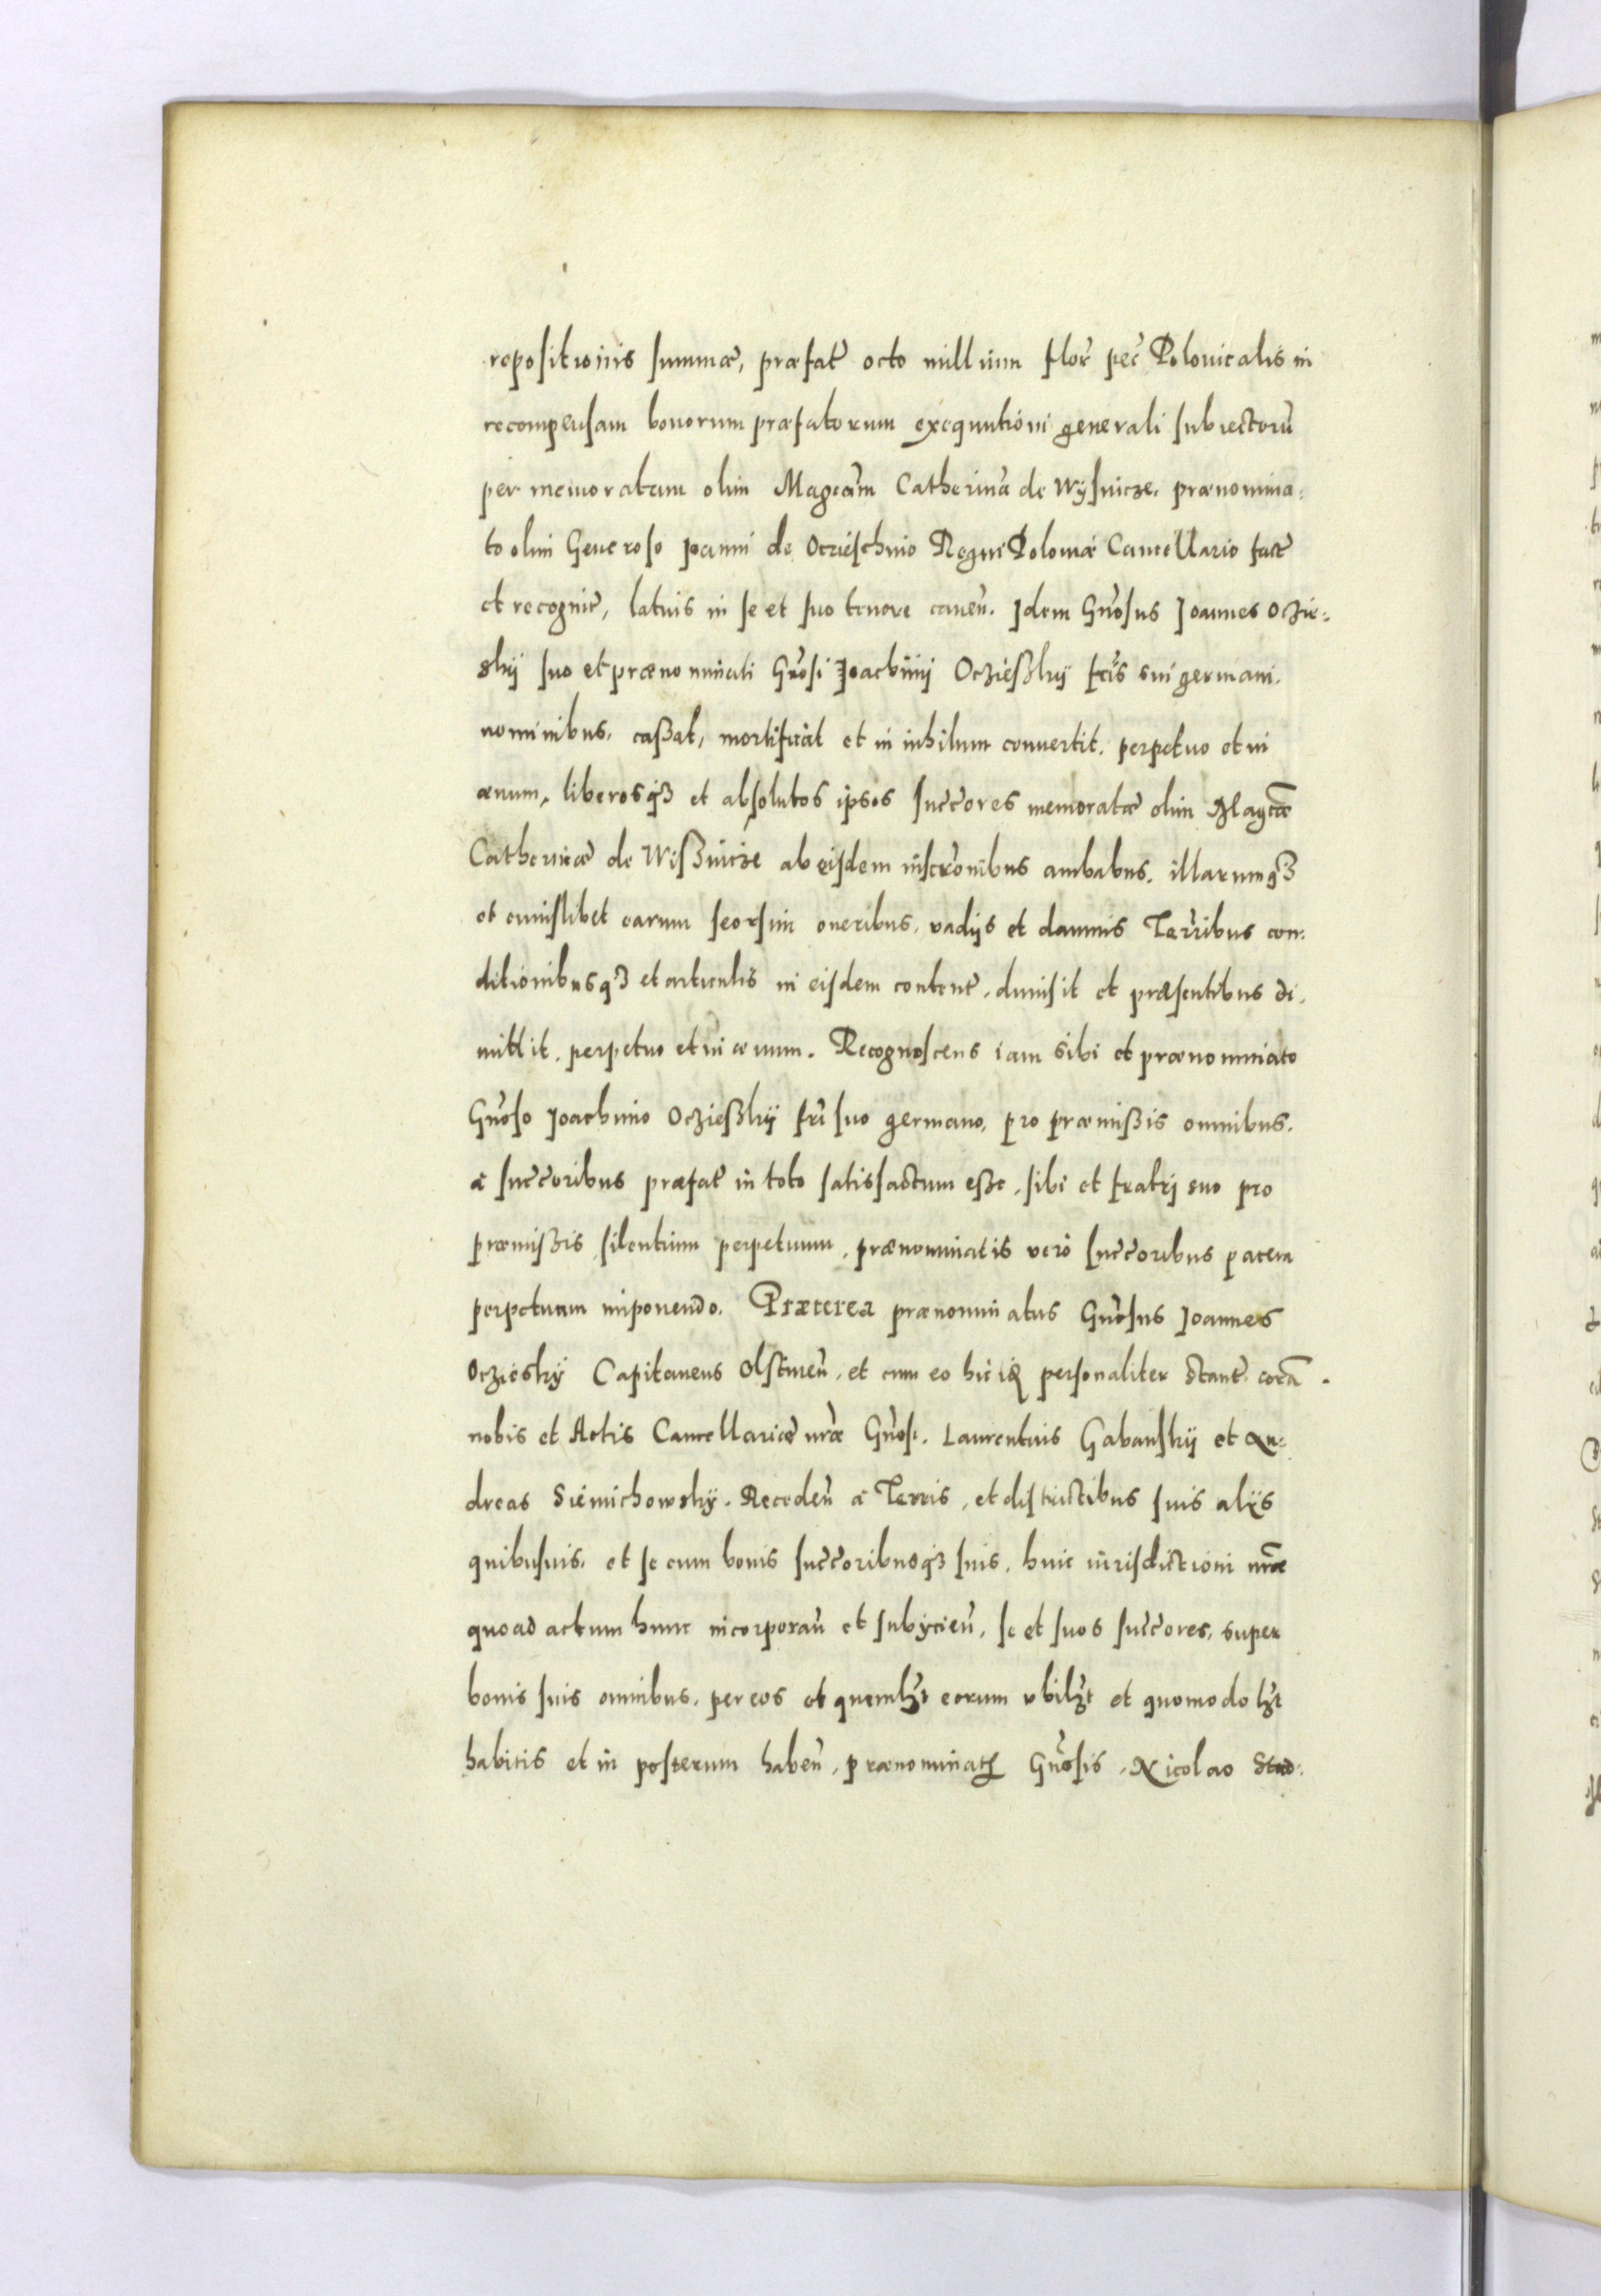 repositionis summæ, præfat̃ octo millium flor̃ pec̃ Polonicalis in
recompensam bonorum præfatorum exequutioni generali subiectorũ
per memoratam olim Magcãm Catherinã de Wÿsnicze, prænomina:
to olim Generoso Joanni de Oczieschnio Regni Poloniæ Cancellario fact̃
et recognit̃, latius in se et suo tenore caneñ. Jdem Gñosus Joannes Oczie:
skÿ suo et prænominati Gñosi Joachimj Ocziesskÿ fr̃is sui germani.
nominibus, cassat, mortificat et in inhilum conuertit, perpetuo et in
æuum, liberosq3 et absolutos ipsos succ̃ores memoratæ olim Magcæ̃
Catherinæ de Wissnicze ab eisdem inscr̃onibus ambabus, illarumq3
et cuiuslibet earum seorsim oneribus, vadijs et damnis Terr̃ibus con:
ditionibusq3 et articulis in eisdem content̃, dimisit et præsentibus di:
mittit, perpetuo et in æuum. Recognoscens iam sibi et prænominato
Gñoso Joachimo Ocziesskÿ fr̃i suo germano, pro præmissis omnibus,
a succ̃oribus præfat̃ in toto satisfactum esse, sibi et fratrj suo pro
præmissis silentium perpetuum, prænominatis vero succ̃oribus pacem
perpetuam imponendo. Præterea prænominatus Gñosus Joannes
Oczieskÿ Capitaneus Olstineñ, et cum eo hic personaliter stant̃ corã
nobis et Actis Cancellariæ nr̃æ Gñosi, Laurentius Gabanskÿ et An:
dreas Siemichowskÿ. Recedeñ a Terris, et districtibus suis alijs
quibusuis, et se cum bonis succ̃oribusq3 suis, huic iurisdictioni nr̃æ
quoad actum hunc incorporañ et subijcieñ, se et suos succ̃ores, super
bonis suis omnibus, per eos et quemlȝt eorum vbilȝt et quomodolȝt
habitis et in posterum habeñ, prænominatis Gñosis, Nicolao Stad: